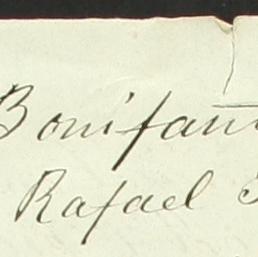 Bonifaci
Rafael